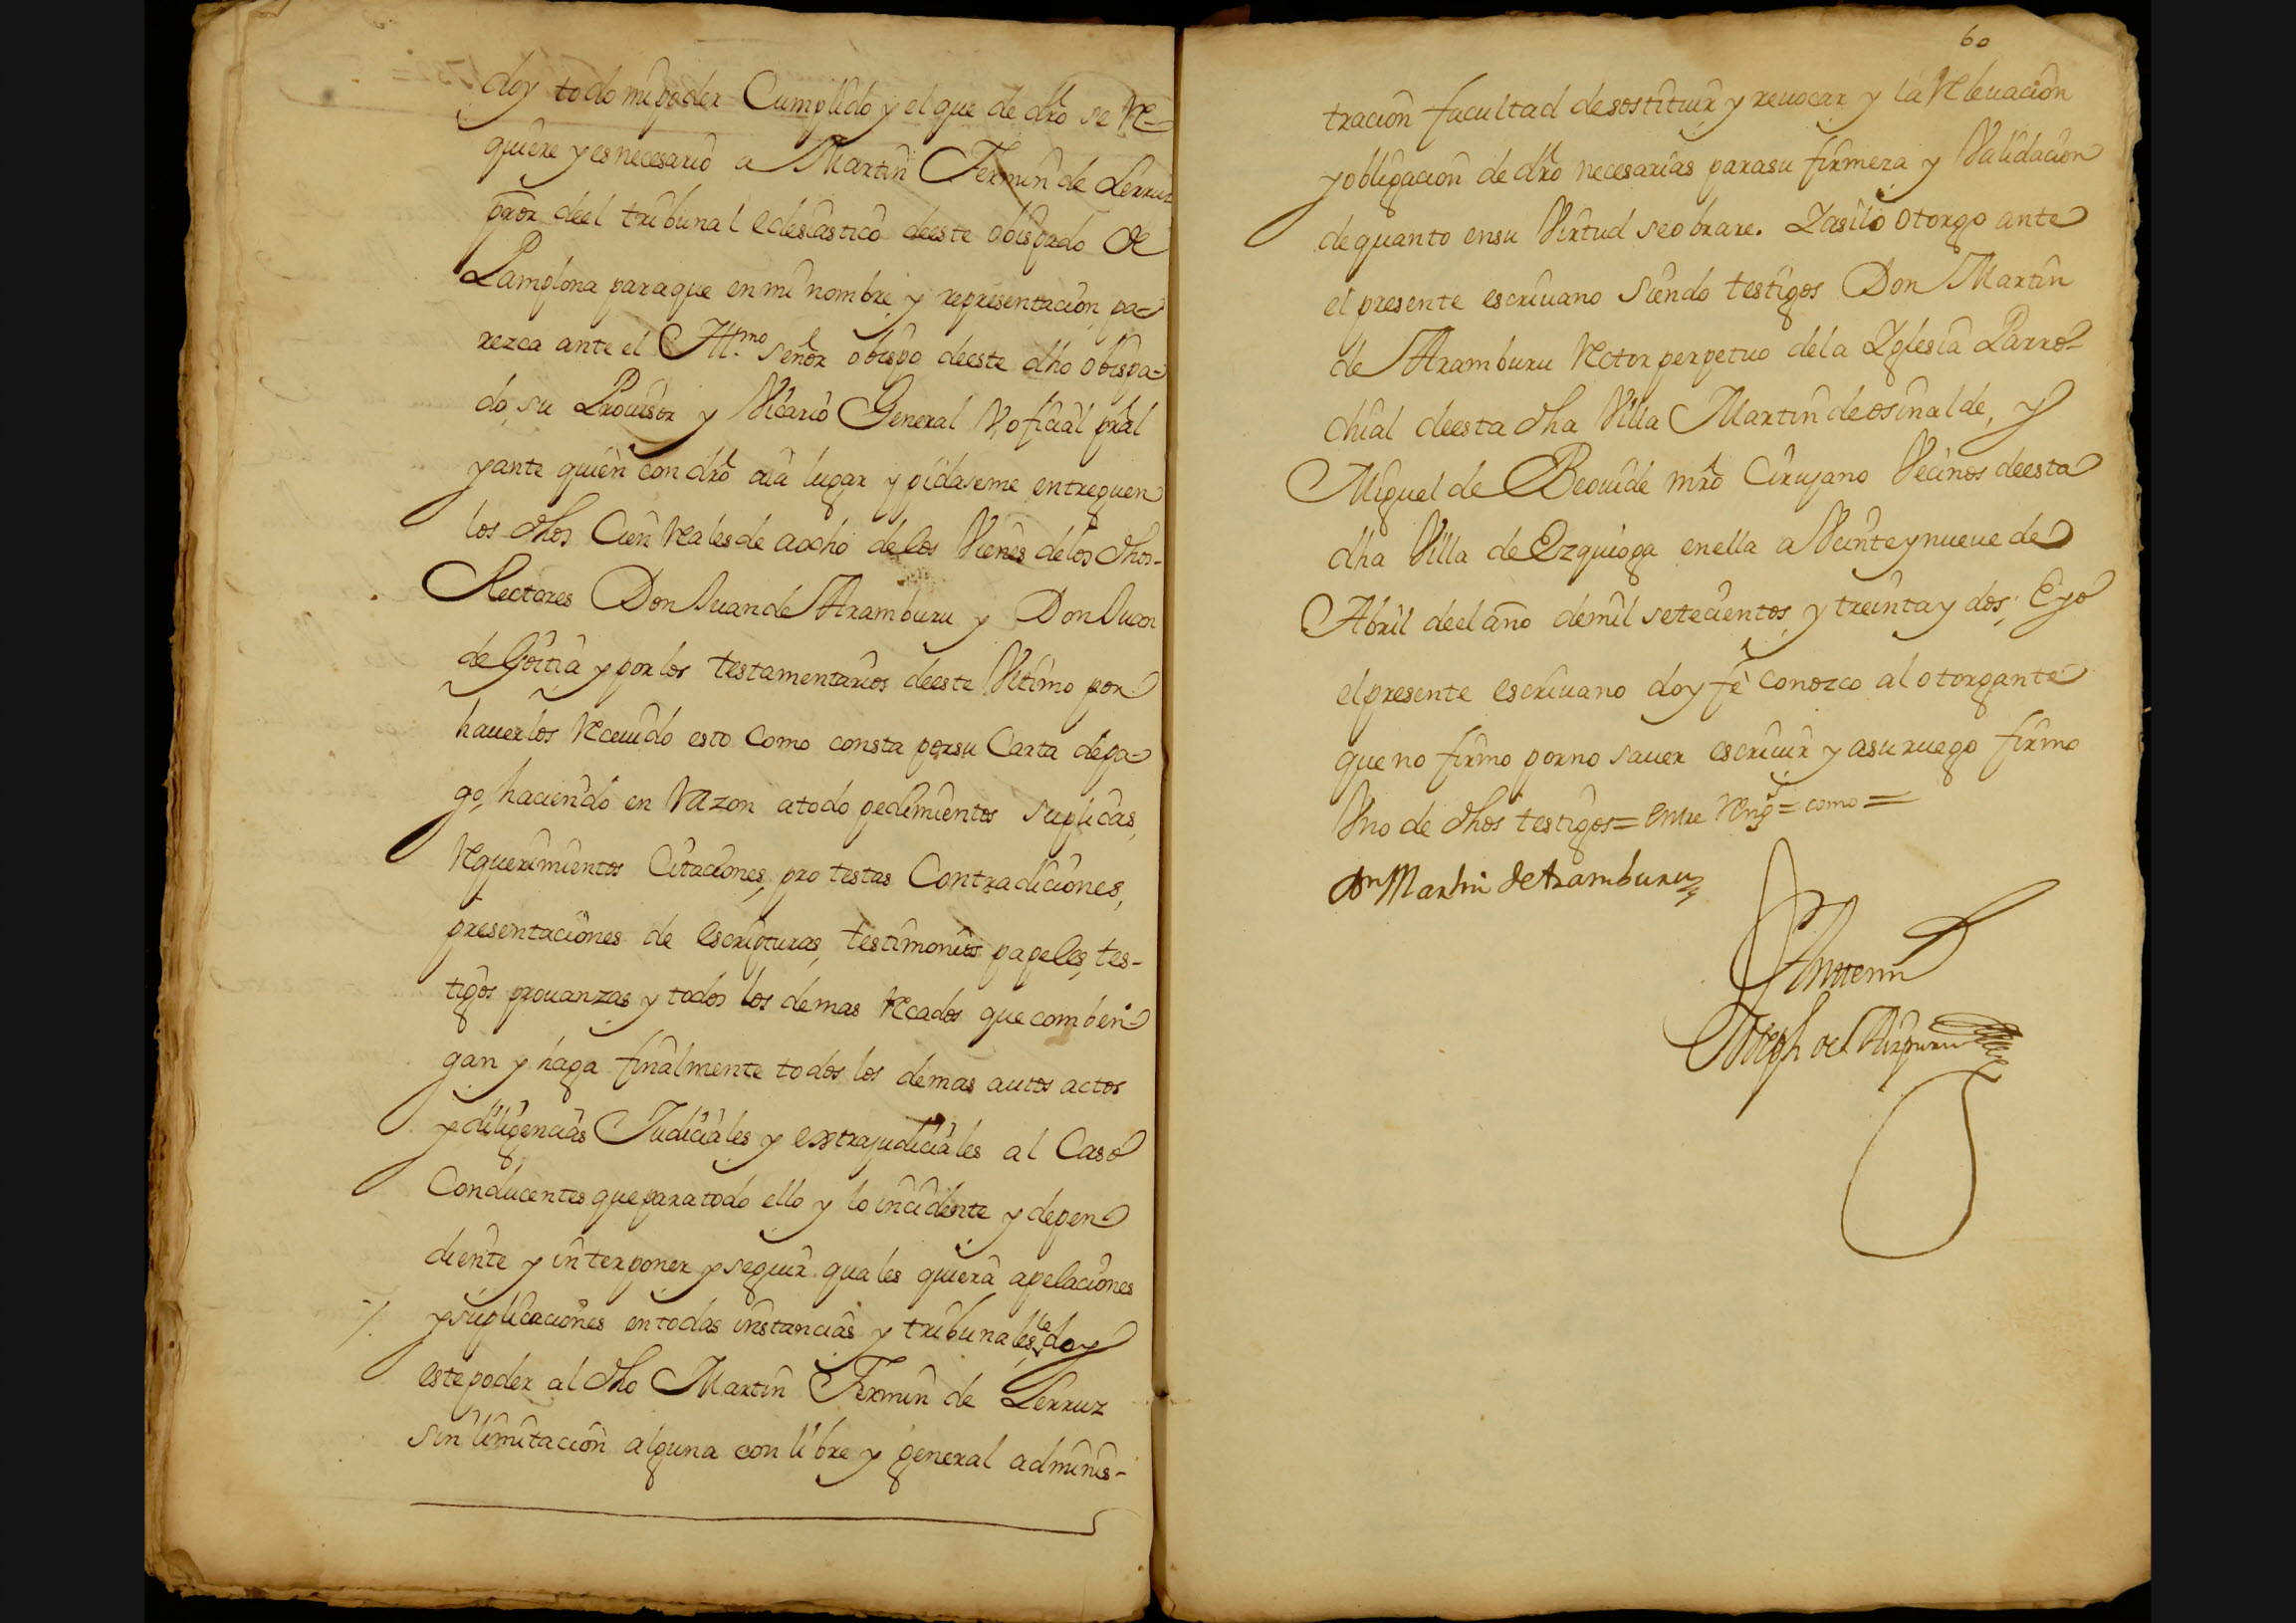 doy todo mi poder Cumplido y el que de dro se Re=
quiere y es necesario a Martin Fermin de Lerruz
pror deel tribunal eclesiastico deeste obispado de
Pamplona paraque en mi nombre y representacion pa=
rezca ante el Illmo señor obispo deeste dho obispa=
do, su Prouisor y Vicario General V oficial pral
y ante quien con dro aia lugar y pida seme entreguen
los dhos Cien Reales de aocho de los Vienes de los dhos-
Rectores Don Juan de Aramburu y Don Juan
de Goitia y por los testamentarios deeste Vltimo por
hauerlos Receuido esto Como consta por su Carta depa=
go, haciendo en Razon atodo pedimientos suplicas,
Requerimientos Citaciones, protestas Contradiciones,
presentaciones de escripturas, testimonios papeles, tes-
tigos prouanzas y todos los demas Recados que comben=
gan y haga finalmente todos los demas autos actos
y diligencias Judiciales y extrajudiciales al Caso
Conducentes que para todo ello y lo incidente y depen
diente y interponer y seguir quales quiera apelaciones
y suplicaciones en todas instancias y tribunales, le doy
este poder al dho Martin Fermin de Lerruz
sin limitacion alguna con libre y general adminis-
60
tracion facultad de sostituir y reuocar y la Releuacion
y obligacion de dro necesarias para su firmeza y Validacion
de quanto en su Virtud se obrare. Y asi lo otorgo ante
el presente escriuano siendo testigos Don Martin
de Aramburu Rector perpetuo de la Yglesia Parro=
chial deesta dha Villa Martin de osinalde, y
Miguel de Beouide mro Cirujano Vecinos deesta
dha Villa de Ezquioga en ella a Veinte y nueue de
Abril deel año de mil setecientos, y treinta y dos, E yo
el presente escriuano doy fe conozco al otorgante
que no firmo por no sauer escriuir y asu ruego firmo
Vno de dhos testigos = entre Rengs = como =
Dn Martin de Aramburu
Antemi
Joseph de Aizpuru